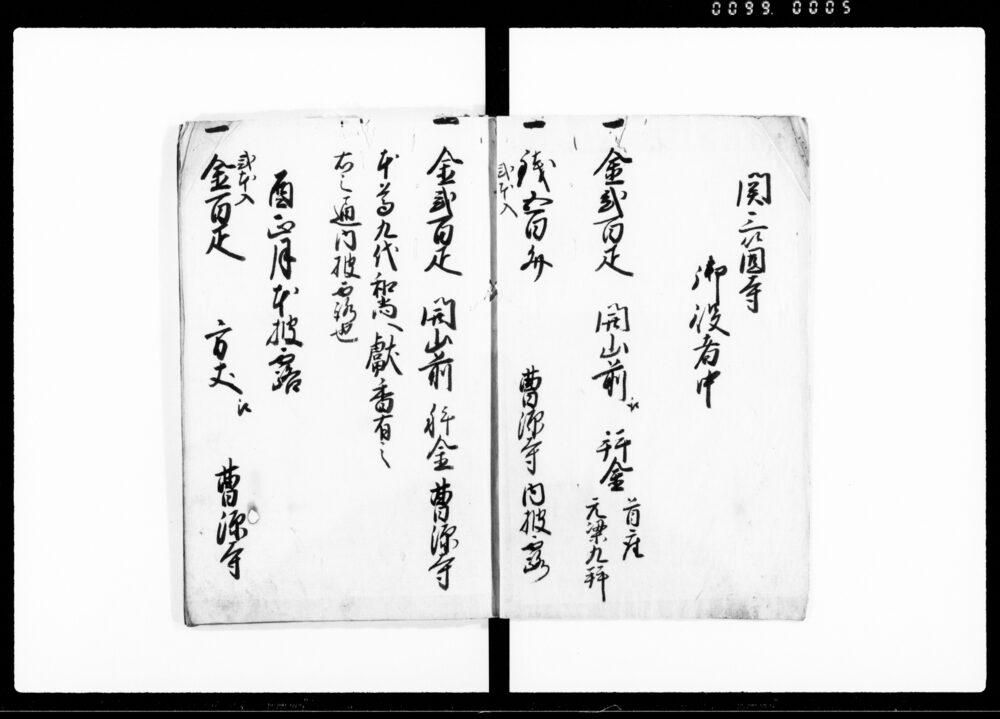 0099.0005
関三箇寺
御役者中
一 金弐百疋 開山前江 拝金 首座 元梁九拝
一 銭五百文 曹源寺内披露
弐本入
一 金弐百疋 開山前 拝金 曹源寺
本寺九代和尚へ献香有之
右之通内披露也
酉正月本披露
弐本入
一 金百疋 方丈江 曹源寺